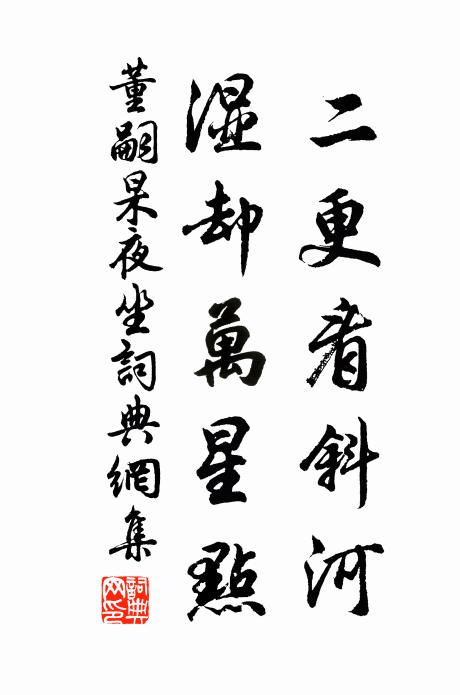 二更看斜河
濕却萬星點
董嗣杲夜坐詞典網集
詞典網印